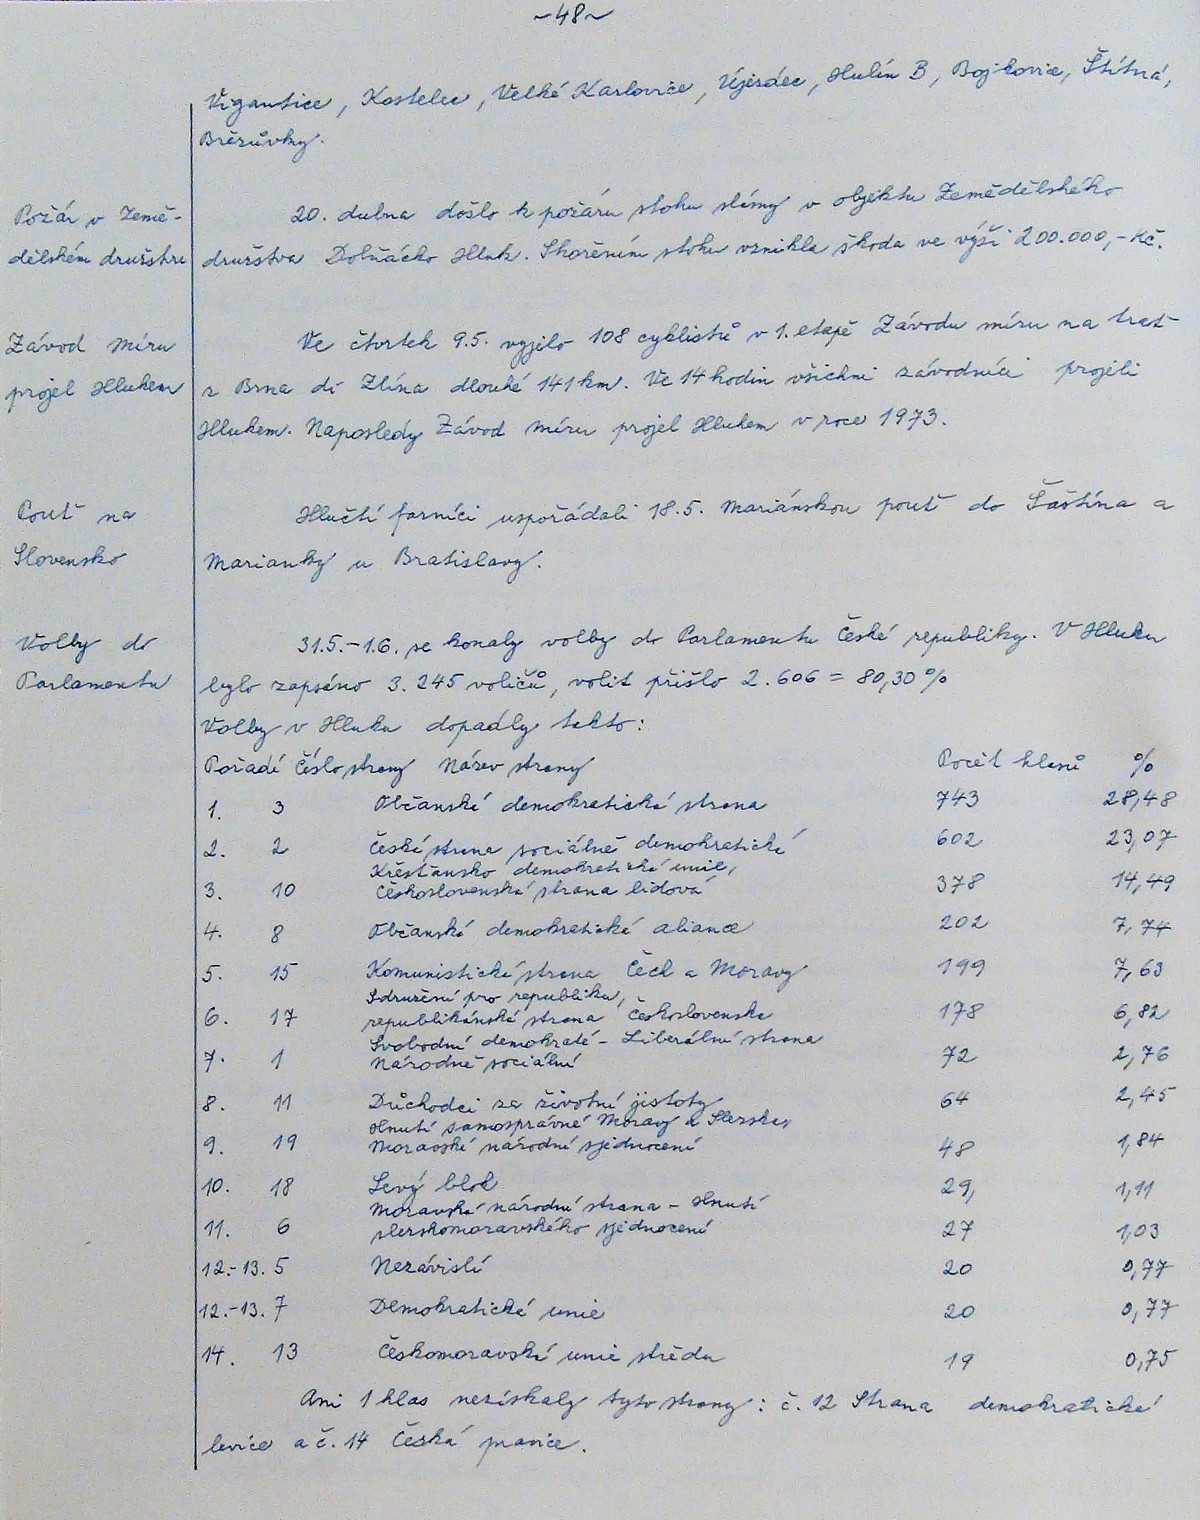 ~48~
Vigantice, Kostelec, Velké Karlovice, Újezdec, Hulín B, Bojkovice, Štítná,
Březůvky.
Požár v Země-
dělském družstvu
20. dubna došlo k požáru stohu slámy v objektu Zemědělského
družstva Dolňácko Hluk. Shořením stohu vznikla škoda ve výši 200.000,-Kč.
Závod míru
projel Hlukem
Ve čtvrtek 9.5. vyjelo 108 cyklistů v 1. etapě Závodu míru na trať
z Brna do Zlína dlouhé 141 km. Ve 14 hodin všichni závodníci projeli
Hlukem. Naposledy Závod míru projel Hlukem v roce 1973.
Pouť na
Slovensko
Hlučtí farníci uspořádali 18.5. Mariánskou pouť do Šaštína a
Marianky u Bratislavy.
Volby do
Parlamentu
31.5.-1.6. se konaly volby do Parlamentu České republiky. V Hluku
bylo zapsáno 3.245 voličů, volit přišlo 2.606 = 80,30 %
Volby v Hluku dopadly takto:
Pořadí Číslo strany Název strany Počet hlasů %
1. 3 Občanská demokratická strana 743 28,48
2. 2 Česká strana sociálně demokratická 602 23,07
Křesťansko demokratická unie,
3. 10 Československá strana lidová 378 14,49
4. 8 Občanská demokratická aliance 202 7,74
5. 15 Komunistická strana Čech a Moravy 199 7,63
Sdružení pro republiku,
6. 17 republikánská strana Československa 178 6,82
Svobodní demokraté - Liberální strana
7. 1 Národně sociální 72 2,76
8. 11 Důchodci za životní jistoty 64 2,45
Hnutí samosprávné Moravy a Slezska,
9. 19 Moravské národní sjednocení 48 1,84
10. 18 Levý blok 29, 1,11
Moravská národní strana - Hnutí
11. 6 slezskomoravského sjednocení 27 1,03
12.-13. 5 Nezávislí 20 0,77
12.-13. 7 Demokratická unie 20 0,77
14. 13 Českomoravská unie středu 19 0,75
Ani 1 hlas nezískaly tyto strany: č. 12 Strana demokratické
levice a č. 14 Česká pravice.